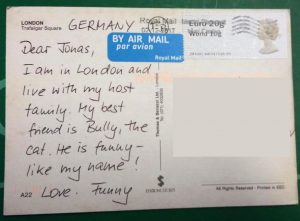 LONDON
Trafalgar Square
GERMANY
Royal Mail
BY AIR MAIL
par avion
Royal Mail
Euro 20g
World 10g
Dear Jonas,
I am in London and
live with my host
family. My best
friend is Bully, the
cat. He is funny -
like my name!
Love. Funny
A22
All Rights Reserved - Printed in EEC